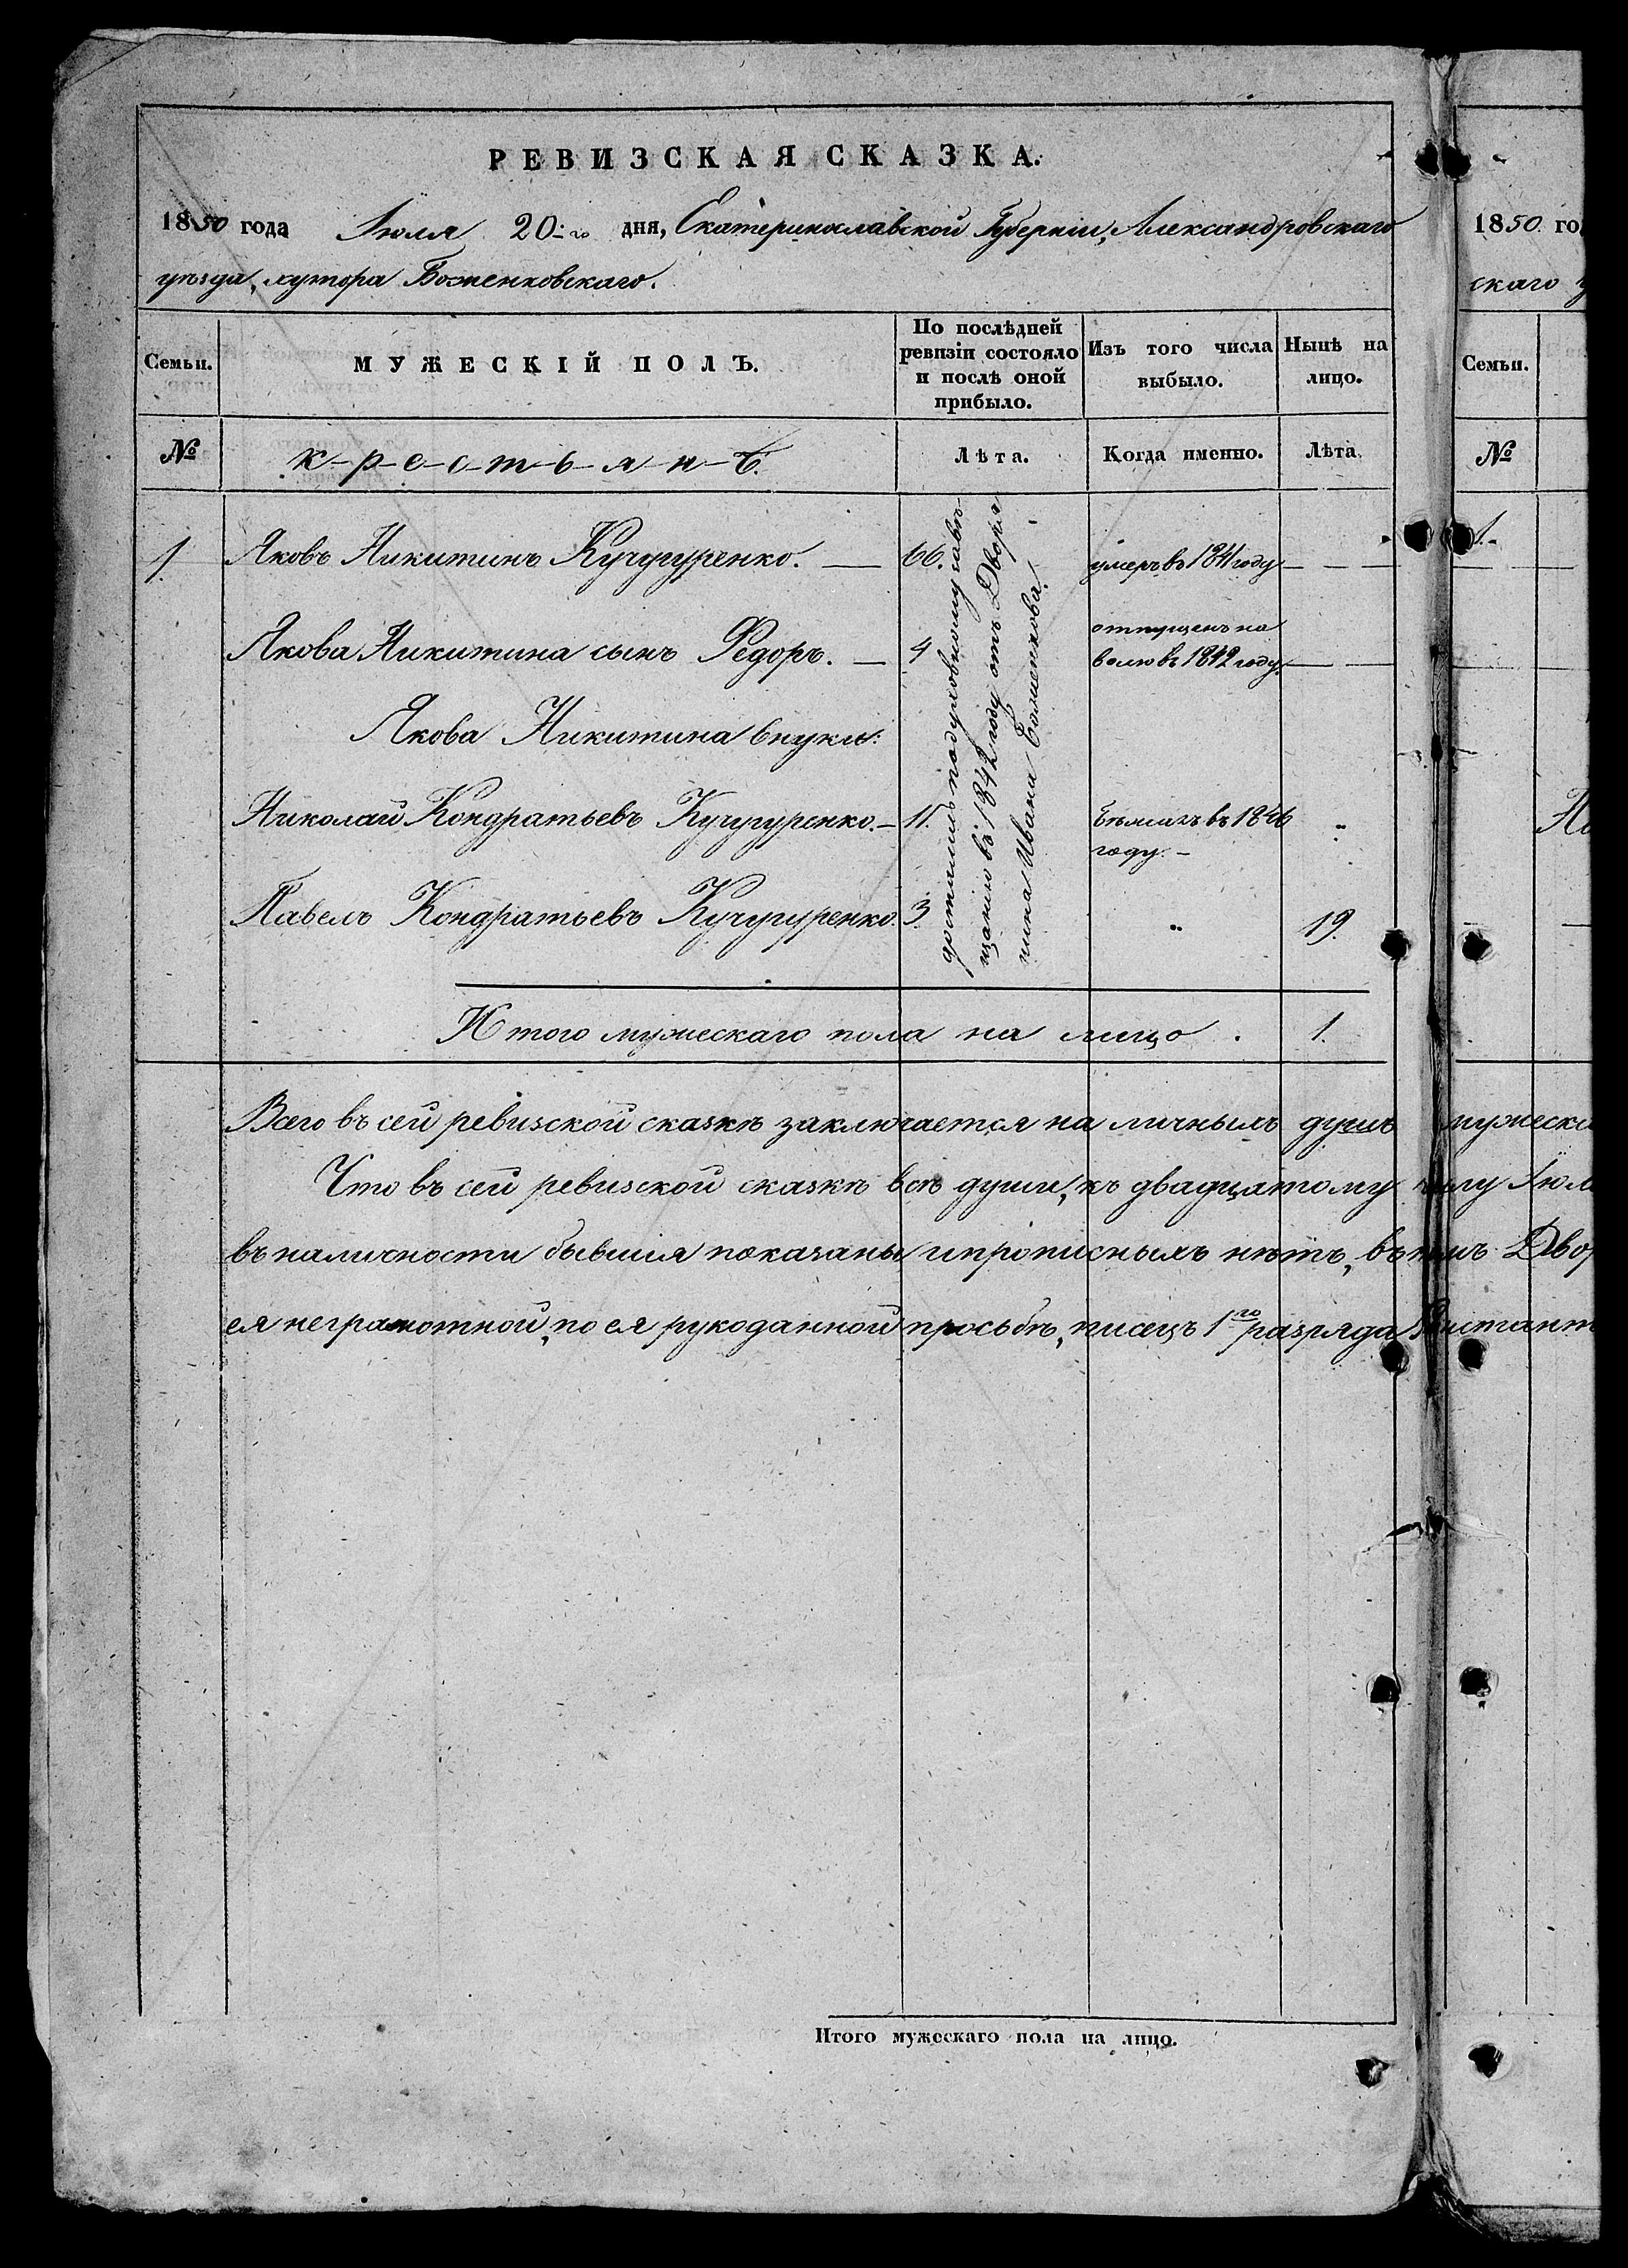 РЕВИЗСКАЯ СКАЗКА.
1850 года Іюля 20:го дня, Екатеринославской Губерніи, Александровскаго
уѣзда, хутора Боженковскаго.
Семьи.
МУЖЕСКІЙ ПОЛЪ.
По послѣдней ревизіи состояло и послѣ оной прибыло.
Изъ того числа выбыло.
Нынѣ на лицо.
№
к-р-е-с-т-ь-я-н-ъ.
Лѣта.
Когда именно.
Лѣта
1. Яковъ Никитинъ Кучугуренко. — 66. умеръ въ 1841 году — — —
Якова Никитина сынъ Федоръ. — 4 отпущенъ на
волю въ 1842 году. — —
Якова Никитина внуки:
Николай Кондратьевъ Кучугуренко. — 11. бѣжалъ въ 1846 "
году. —
Павелъ Кондратьевъ Кучугуренко. 3. " 19.
достались по духовному завѣ-
щанію въ 1842 году отъ Дворя-
нина Ивана Боженкова.
Итого мужескаго пола на лицо . 1.
Всего въ сей ревизской сказкѣ заключается на личныхъ душъ мужеска
Что въ сей ревизской сказкѣ всѣ души, къ двадцатому числу Іюл
въ наличности бывшія показаны и прописныхъ нѣтъ, въ томъ Двор
ея неграмотной, по ея рукоданной просьбѣ, писецъ 1го разряда
Итого мужескаго пола на лицо.
1850 го
скаго у
Семьи.
№
1.